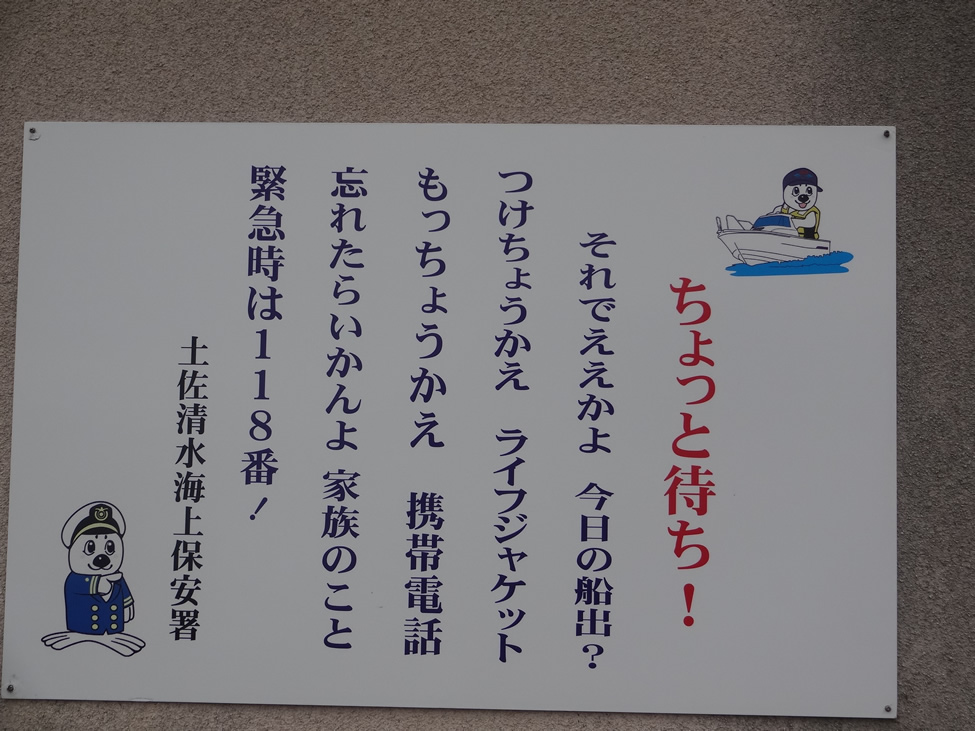 ちょっと待ち！
それでええかよ　今日の船出？
つけちょうかえ　ライフジャケット
もっちょうかえ　携帯電話
忘れたらいかんよ　家族のこと
緊急時は１１８番！
土佐清水海上保安署